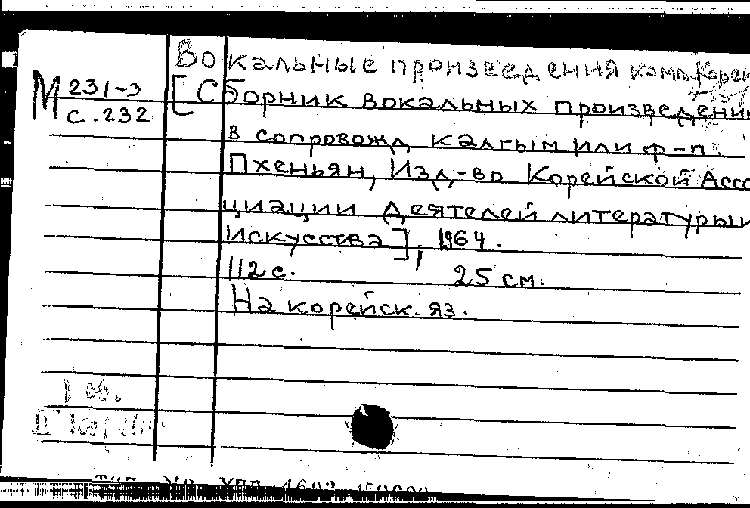 Вокальные произведения комп. Корей
М 231-3
с. 232
[Сборник вокальных произведений
в сопровожд каягым или ф-п
Пхеньян, Изд-во Корейской Ассо
циации деятелей литературы и
искусства], 1964.
112 с. 25 см.
На корейск. яз.
1 об.